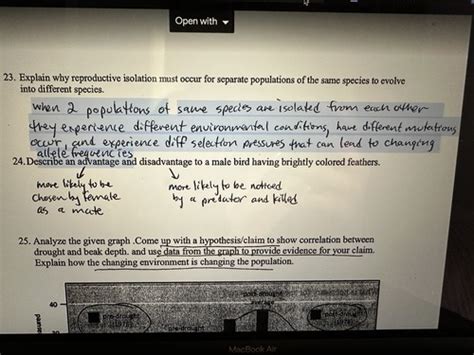 Open with
23. Explain why reproductive isolation must occur for separate populations of the same species to evolve
into different species.
when 2 populations of same species are isolated from each other
they experience different environmental conditions, have different mutations
occur, and experience diff selection pressures that can lead to changing
allele frequencies
24. Describe an advantage and disadvantage to a male bird having brightly colored feathers.
more likely to be
chosen by female
as a mate
more likely to be noticed
by a predator and killed
25. Analyze the given graph .Come up with a hypothesis/claim to show correlation between
drought and beak depth. and use data from the graph to provide evidence for your claim.
Explain how the changing environment is changing the population.
post-drought
average
40
pre-drought
(1976)
pre-drought
(1978)
MacBook Air